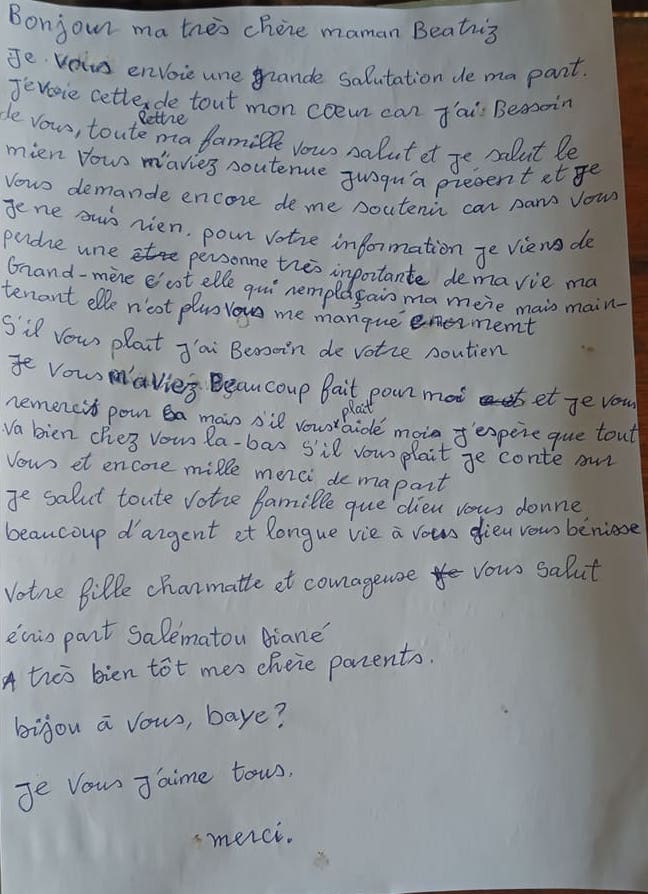 Bonjour ma très chère maman Beatriz
Je vous envoie une grande salutation de ma part.
J'évoie cette lettre de tout mon cœur car j'ai Bessoin
de vous, toute ma famille vous salut et je salut le
mien vous m'aviez soutenue jusqu'à présent et je
vous demande encore de me soutenir car sans vous
je ne suis rien. pour votre information je viens de
perdre une personne très inportante de ma vie ma
Grand-mère c'est elle qui remplaçais ma mère mais main-
tenant elle n'est plus vous me manqué enormemt
S'il vous plait j'ai Bessoin de votre soutien
Je vous m'aviez Beaucoup fait pour moi et je vous
remercis pour ça mais s'il vous plait aidé moi j'espère que tout
va bien chez vous la-bas S'il vous plait je conte sur
vous et encore mille merci de ma part
Je salut toute votre famille que dieu vous donne
beaucoup d'argent et longue vie à vous dieu vous bénisse
votre fille charmatte et courageuse vous salut
écris part Salématou Diané
A très bien tôt mes chère parents.
bijou à vous, baye?
Je vous j'aime tous.
merci.